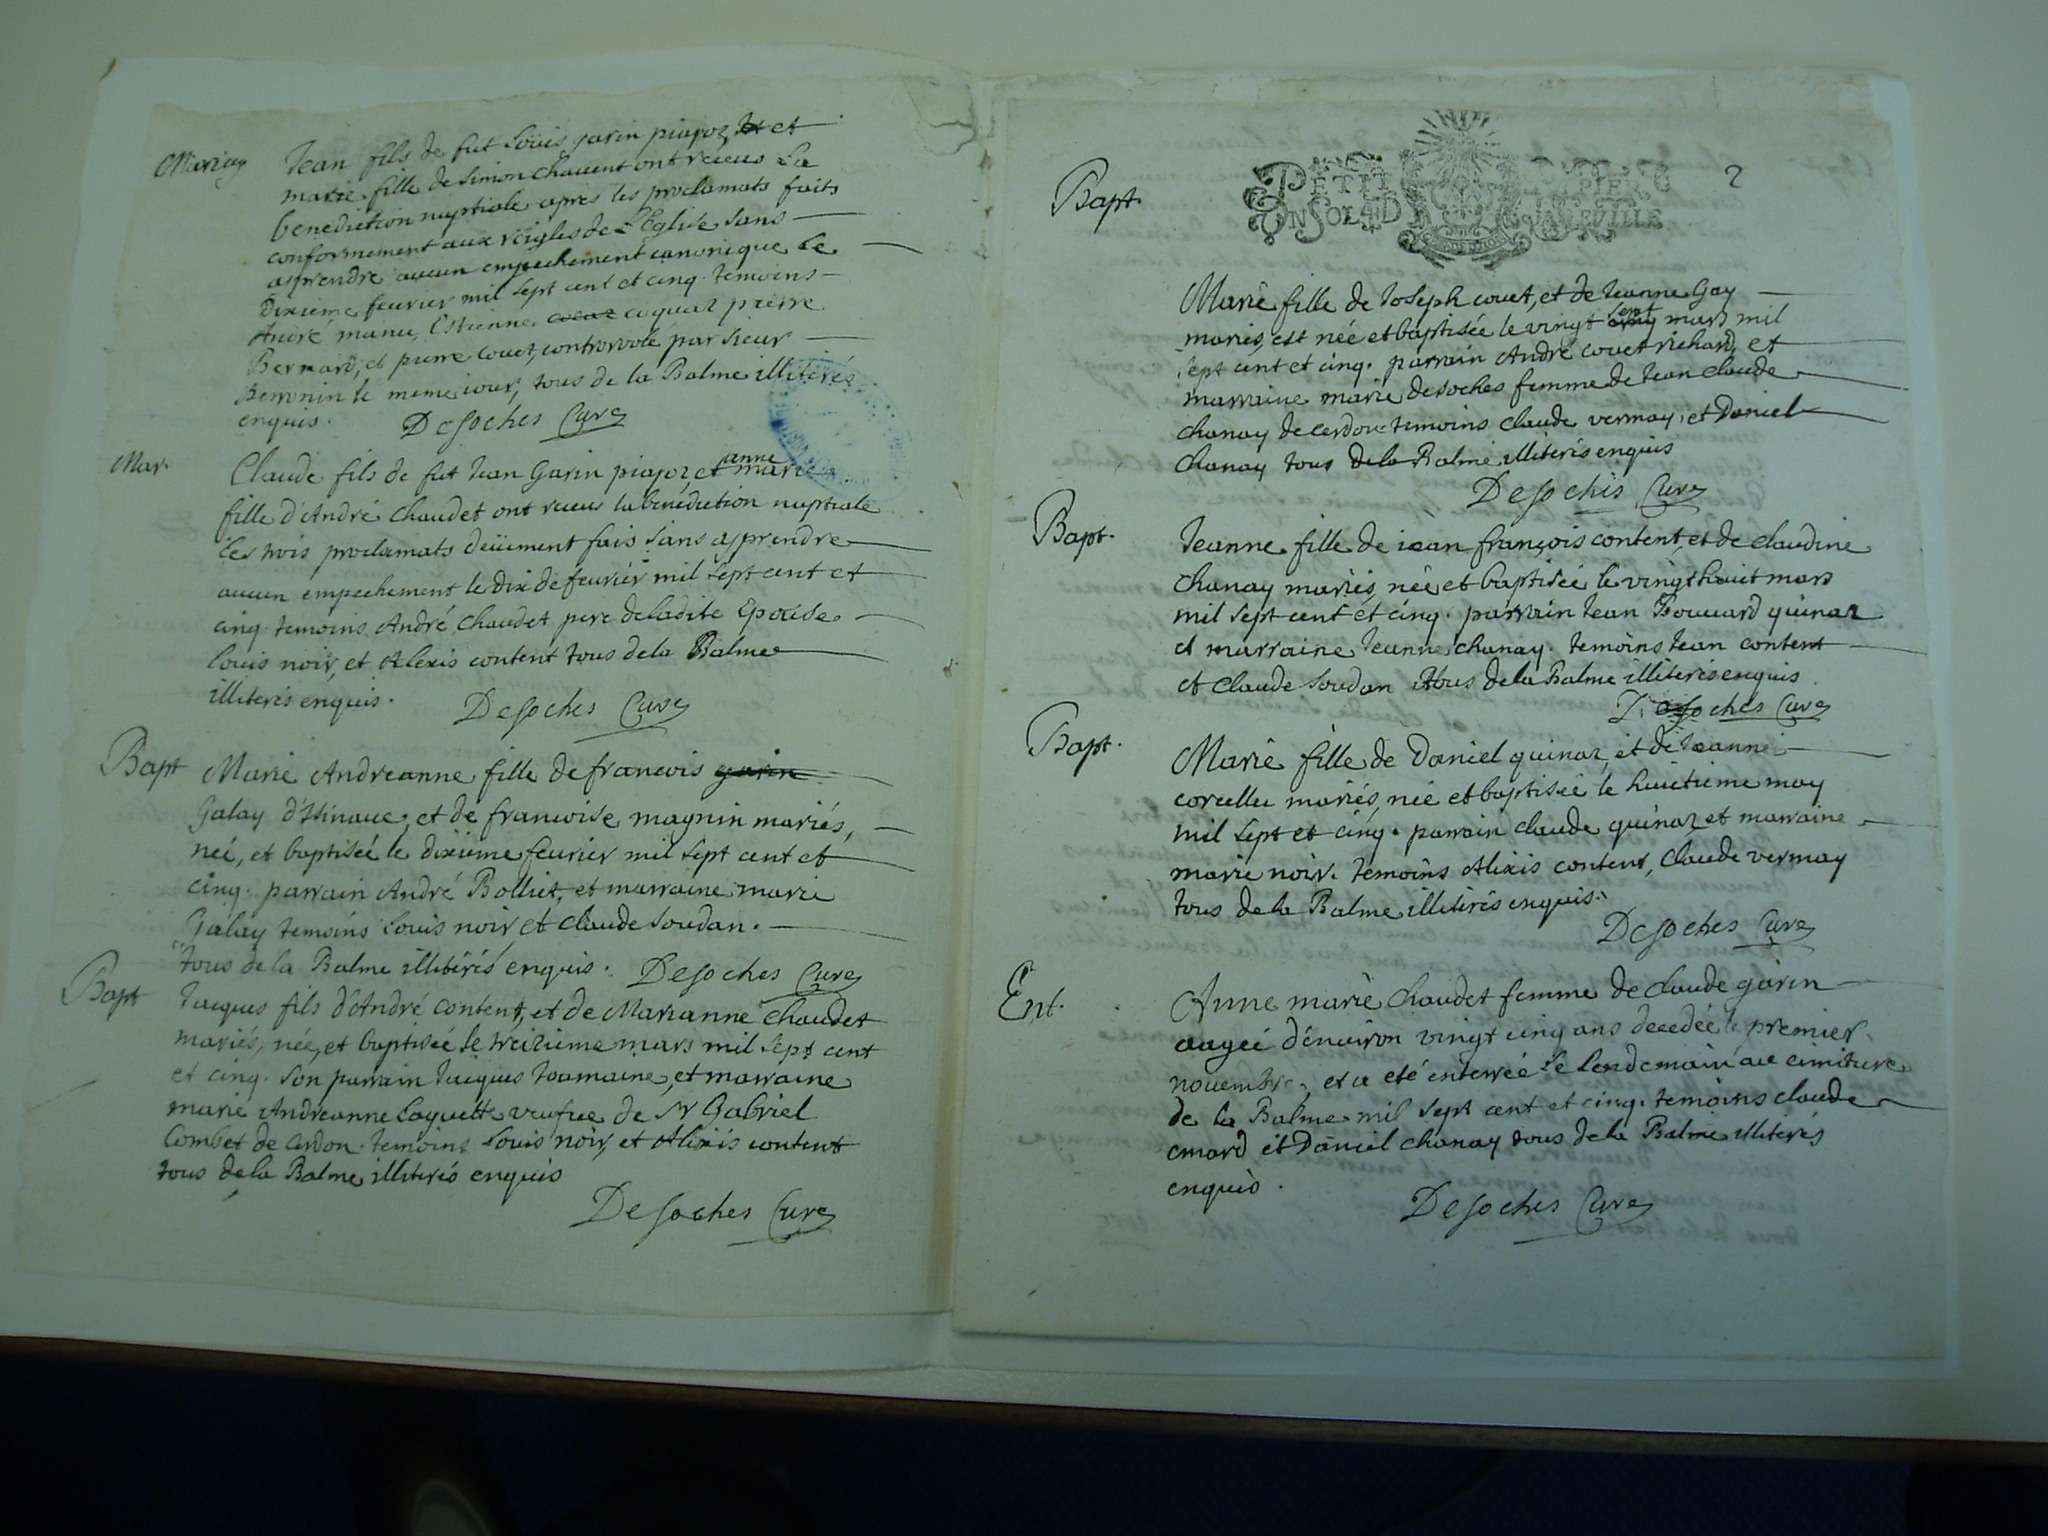 Mariag
Jean fils de fut Loüis garin piapoz et
marie fille de simon chavent ont receus La
benediction nuptiale apres les proclamats faits
conformement aux reigles de L'Eglise sans
asprendre aucun empechement canonique Le
Dixieme feurier mil sept cent et cinq. temoins
André manu, Estienne coquaz pierre
Bernard, et pierre couet, controrolé par sieur
Perronin le meme iour, tous de la Balme illiterés
enquis. Desoches Curé
Mar.
Claude fils de fut Jean Garin piapoz, et anne marie
fille d'André chaudet ont receus la benédiction nuptiale
Les trois proclamats deüement fais sans asprendre
aucun empechement le dix de feurier mil sept cent et
cinq. temoins André chaudet pere de ladite Epouse
Louis noir, et Alexis content tous de la Balme
illiterés enquis. Desoches Curé
Bapt
Marie Andreanne fille de francois garin
Galay d'Isinaue, et de francoise magnin mariés,
neé, et baptiseé le dixieme feurier mil sept cent et
cinq. parrain André Bolliet, et marraine marie
Galay temoins Louis noir et claude soudan.
tous de la Balme illitérés enquis. Desoches Curé
Bapt
Jacques fils d'André content, et de Marianne chaudet
mariés, née, et baptiseé le treizieme mars mil sept cent
et cinq. son parrain Jacques tournaine, et marraine
marie Andreanne Laguette veufue de Sr Gabriel
Combet de cerdon. temoins Louis noir, et Alixis content
tous de la Balme illiterés enquis
Desoches Curé
2
PETIT PAPIER
UN SOL 4 D LA FEUILLE
Bapt.
Marie fille de Joseph couet, et de Jeanne Gay
mariés, est née et baptisée le vingt sept mars mil
sept cent et cinq. parrain André couet richard, et
marraine marie desoches femme de Jean claude
chanay de cerdon temoins claude vermay, et Daniel
chanay tous de la Balme illiterés enquis
Desoches Curé
Bapt.
Jeanne fille de iean françois content, et de claudine
chanay mariés, née et baptiseé le vingt huict mars
mil sept cent et cinq. parrain Jean Bouuard quinaz
et marraine Jeanne chanay. temoins Jean content
et claude soudan tous de la Balme illiterés enquis
Desoches Curé
Bapt.
Marie fille de Daniel quinaz, et de Jeanne
corcellu mariés, née et baptisée le huictieme may
mil sept et cinq. parrain claude quinaz et marraine
marie noir. temoins Alixis content, claude vermay
tous de la Balme illiterés enquis.
Desoches Curé
Ent.
Anne marie chaudet femme de claude garin
aagée d'énuiron vingt cinq ans decedée le premier
nouembre, et a eté enterrée Le Lendemain au cimitiere
de la Balme mil sept cent et cinq. temoins claude
emard et Daniel chanay tous de la Balme illiterés
enquis.
Desoches Curé